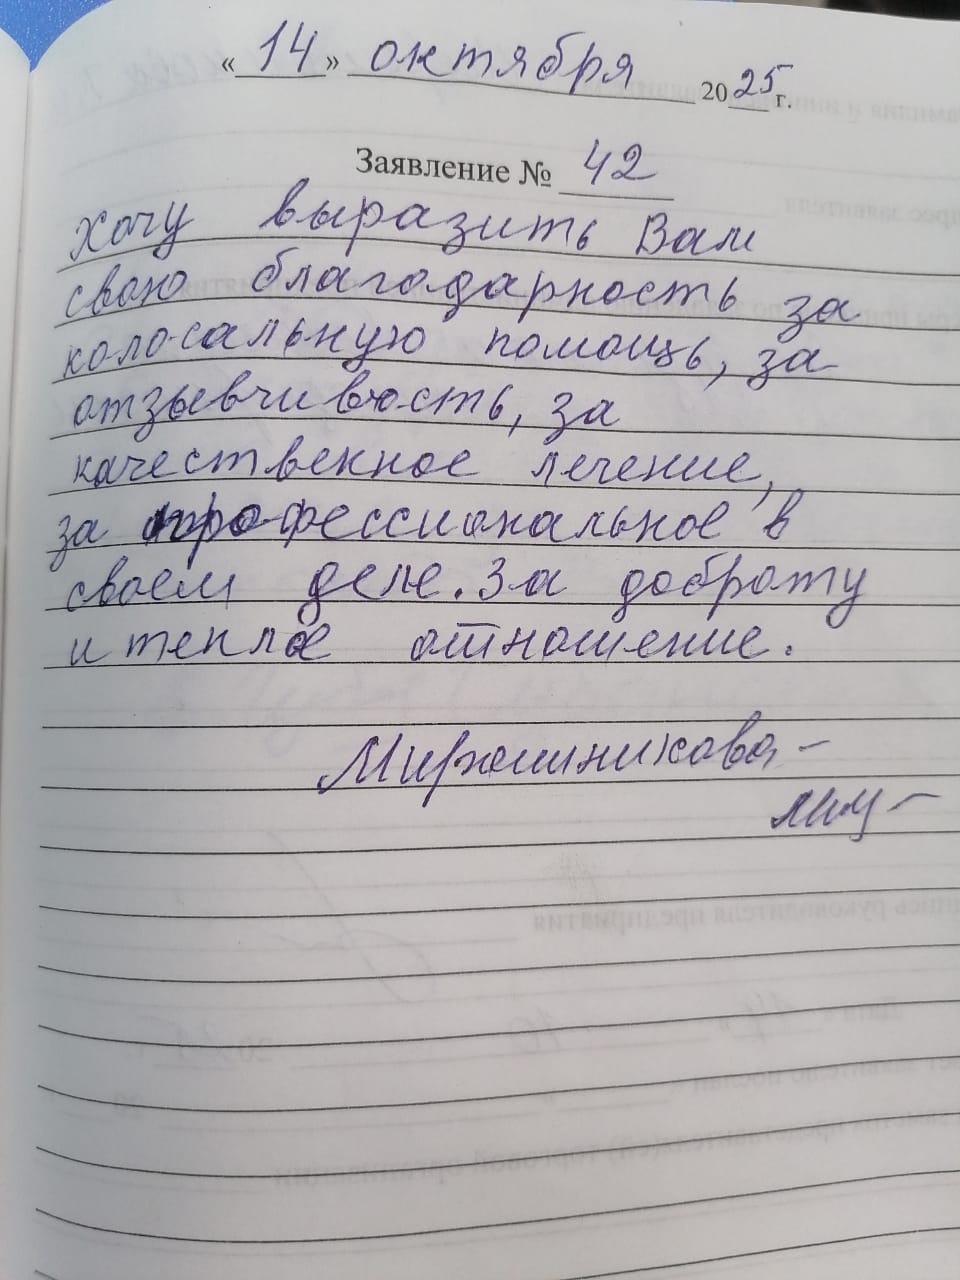 « 14 » октября 2025 г.
Заявление № 42
Хочу выразить Вам
свою благодарность за
колосальную помощь, за
отзывчивость, за
качественное лечение,
за профессиональное в
своем деле. За доброту
и теплое отношение.
Мирошникова